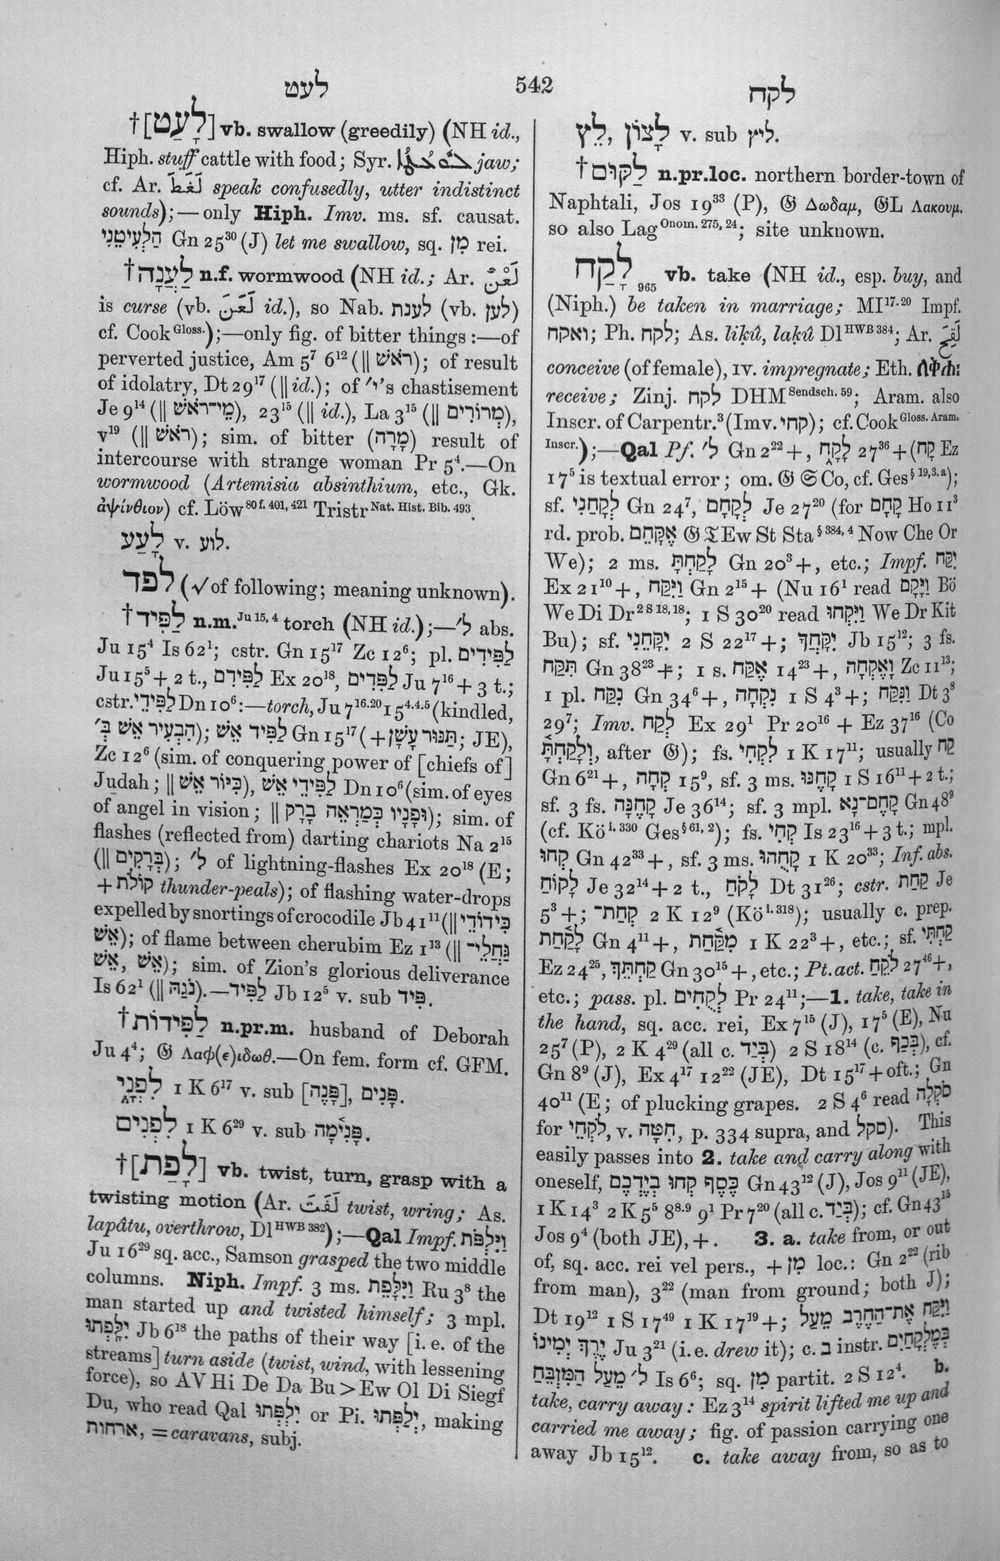 לעט
542
לקח
†[לָעַט] vb. swallow (greedily) (NH id.,
Hiph. stuff cattle with food; Syr. jaw;
cf. Ar. لَغَطَ speak confusedly, utter indistinct
sounds);—only Hiph. Imv. ms. sf. causat.
הַלְעִיטֵנִי Gn 25³⁰ (J) let me swallow, sq. מִן rei.
†לַעֲנָה n.f. wormwood (NH id.; Ar. لَعْنٌ
is curse (vb. لَعَنَ id.), so Nab. לענת (vb. לען)
cf. Cook Gloss.);—only fig. of bitter things:—of
perverted justice, Am 5⁷ 6¹² (|| רֹאשׁ); of result
of idolatry, Dt 29¹⁷ (|| id.); of י״'s chastisement
Je 9¹⁴ (|| מֵי־רֹאשׁ), 23¹⁵ (|| id.), La 3¹⁵ (|| מְרוֹרִים),
v¹⁹ (|| רֹאשׁ); sim. of bitter (מָרָה) result of
intercourse with strange woman Pr 5⁴.—On
wormwood (Artemisia absinthium, etc., Gk.
ἀψίνθιον) cf. Löw 80 f. 401, 421 Tristr Nat. Hist. Bib. 493.
לָעַע v. לוע.
לפד (√ of following; meaning unknown).
†לַפִּיד n.m. Ju 15, 4 torch (NH id.);—ל׳ abs.
Ju 15⁴ Is 62¹; cstr. Gn 15¹⁷ Zc 12⁶; pl. לַפִּידִים
Ju 15⁵ + 2 t., לַפִּידִם Ex 20¹⁸, לַפִּדִים Ju 7¹⁶ + 3 t.;
cstr. לַפִּידֵי Dn 10⁶:—torch, Ju 7¹⁶·²⁰ 15⁴·⁴·⁵ (kindled,
הִבְעִיר אֵשׁ בְּ׳); לַפִּיד אֵשׁ Gn 15¹⁷ (+ תַּנּוּר עָשָׁן; JE),
Zc 12⁶ (sim. of conquering power of [chiefs of]
Judah; || כִּיּוֹר אֵשׁ), לַפִּידֵי אֵשׁ Dn 10⁶ (sim. of eyes
of angel in vision; || וּפָנָיו כְּמַרְאֵה בָרָק); sim. of
flashes (reflected from) darting chariots Na 2¹⁵
(|| בְּרָקִים); ל׳ of lightning-flashes Ex 20¹⁸ (E;
+ קוֹלֹת thunder-peals); of flashing water-drops
expelled by snortings of crocodile Jb 41¹¹ (|| כִּידוֹדֵי
אֵשׁ); of flame between cherubim Ez 1¹³ (|| גַּחֲלֵי־
אֵשׁ, אֵשׁ); sim. of Zion's glorious deliverance
Is 62¹ (|| נֹגַהּ).—לַפִּיד Jb 12⁵ v. sub פִּיד.
†לַפִּידוֹת n.pr.m. husband of Deborah
Ju 4⁴; 𝔊 Λαφ(ε)ιδωθ.—On fem. form cf. GFM.
לִפְנַי 1 K 6¹⁷ v. sub [פָּנֶה], פָּנִים.
לִפְנִים 1 K 6²⁹ v. sub פְּנִימָה.
†[לָפַת] vb. twist, turn, grasp with a
twisting motion (Ar. لَفَتَ twist, wring; As.
lapâtu, overthrow, Dl HWB 382);—Qal Impf. וַיִּלְפֹּת
Ju 16²⁹ sq. acc., Samson grasped the two middle
columns. Niph. Impf. 3 ms. וַיִּלָּפֵת Ru 3⁸ the
man started up and twisted himself; 3 mpl.
יִלָּפְתוּ Jb 6¹⁸ the paths of their way [i. e. of the
streams] turn aside (twist, wind, with lessening
force), so AV Hi De Da Bu > Ew Ol Di Siegf
Du, who read Qal יִלְפְּתוּ or Pi. יְלַפְּתוּ, making
ארחות, = caravans, subj.
לָצוֹן, לֵץ v. sub ליץ.
†לַקּוּם n.pr.loc. northern border-town of
Naphtali, Jos 19³³ (P), 𝔊 Δωδαμ, 𝔊L Λακουμ.
so also Lag Onom. 275, 24; site unknown.
לָקַח 965 vb. take (NH id., esp. buy, and
(Niph.) be taken in marriage; MI 17·20 Impf.
ואקח; Ph. לקח; As. liḳû, laḳû Dl HWB 384; Ar. لَقِحَ
conceive (of female), IV. impregnate; Eth. ለቅሐ፡
receive; Zinj. לקח DHM Sendsch. 59; Aram. also
Inscr. of Carpentr.³ (Imv. קחי); cf. Cook Gloss. Aram.
Inscr.);—Qal Pf. ל׳ Gn 2²² +, לָקָח 27³⁶ + (קח Ez
17⁵ is textual error; om. 𝔊 𝔖 Co, cf. Ges § 19, 3. a);
sf. לְקָחַנִי Gn 24⁷, לְקָחָם Je 27²⁰ (for קָחָם Ho 11³
rd. prob. אֶקָּחֵם 𝔊 𝔗 Ew St Sta § 384, 4 Now Che Or
We); 2 ms. לָקַחְתָּ Gn 20³ +, etc.; Impf. יִקַּח
Ex 21¹⁰ +, וַיִּקַּח Gn 2¹⁵ + (Nu 16¹ read וַיָּקָם Bö
We Di Dr 2 S 18, 18; 1 S 30²⁰ read וַיִּקְחוּ We Dr Kit
Bu); sf. יִקָּחֵנִי 2 S 22¹⁷ +; יִקָּחֲךָ Jb 15¹²; 3 fs.
תִּקַּח Gn 38²³ +; 1 s. אֶקַּח 14²³ +, וָאֶקְחָה Zc 11¹³;
1 pl. נִקַּח Gn 34⁶ +, נִקְחָה 1 S 4³ +; וַנִּקַּח Dt 3⁸
29⁷; Imv. לְקַח Ex 29¹ Pr 20¹⁶ + Ez 37¹⁶ (Co
וְלָקַחְתָּ, after 𝔊); fs. לִקְחִי 1 K 17¹¹; usually קַח
Gn 6²¹ +, קְחָה 15⁹, sf. 3 ms. קָחֶנּוּ 1 S 16¹¹ + 2 t.;
sf. 3 fs. קָחֶנָּה Je 36¹⁴; sf. 3 mpl. קָחֶם־נָא Gn 48⁹
(cf. Kö I. 330 Ges § 61, 2); fs. קְחִי Is 23¹⁶ + 3 t.; mpl.
קְחוּ Gn 42³³ +, sf. 3 ms. קָחֻהוּ 1 K 20³³; Inf. abs.
לָקוֹחַ Je 32¹⁴ + 2 t., לָקֹחַ Dt 31²⁶; cstr. קַחַת Je
5³ +; קְחַת־ 2 K 12⁹ (Kö I. 318); usually c. prep.
לָקַחַת Gn 4¹¹ +, מִקַּחַת 1 K 22³ +, etc.; sf. קַחְתִּי
Ez 24²⁵, קַחְתֵּךְ Gn 30¹⁵ +, etc.; Pt. act. לֹקֵחַ 27⁴⁶ +,
etc.; pass. pl. לְקֻחִים Pr 24¹¹;—1. take, take in
the hand, sq. acc. rei, Ex 7¹⁵ (J), 17⁵ (E), Nu
25⁷ (P), 2 K 4²⁹ (all c. בְּיַד) 2 S 18¹⁴ (c. בְּכַף), cf.
Gn 8⁹ (J), Ex 4¹⁷ 12²² (JE), Dt 15¹⁷ + oft.; Gn
40¹¹ (E; of plucking grapes. 2 S 4⁶ read סֹקְלָה
for לֹקְחֵי, v. חִטָּה, p. 334 supra, and סקל). This
easily passes into 2. take and carry along with
oneself, כֶּסֶף קְחוּ בְיֶדְכֶם Gn 43¹² (J), Jos 9¹¹ (JE),
1 K 14³ 2 K 5⁵ 8⁸·⁹ 9¹ Pr 7²⁰ (all c. בְּיַד); cf. Gn 43¹⁵
Jos 9⁴ (both JE), +. 3. a. take from, or out
of, sq. acc. rei vel pers., + מִן loc.: Gn 2²² (rib
from man), 3²² (man from ground; both J);
Dt 19¹² 1 S 17⁴⁹ 1 K 17¹⁹ +; וַיִּקַּח אֶת־הַחֶרֶב מֵעַל
יֶרֶךְ יְמִינוֹ Ju 3²¹ (i. e. drew it); c. ב instr. בְּמֶלְקָחַיִם
ל׳ מֵעַל הַמִּזְבֵּחַ Is 6⁶; sq. מִן partit. 2 S 12⁴. b.
take, carry away: Ez 3¹⁴ spirit lifted me up and
carried me away; fig. of passion carrying one
away Jb 15¹². c. take away from, so as to